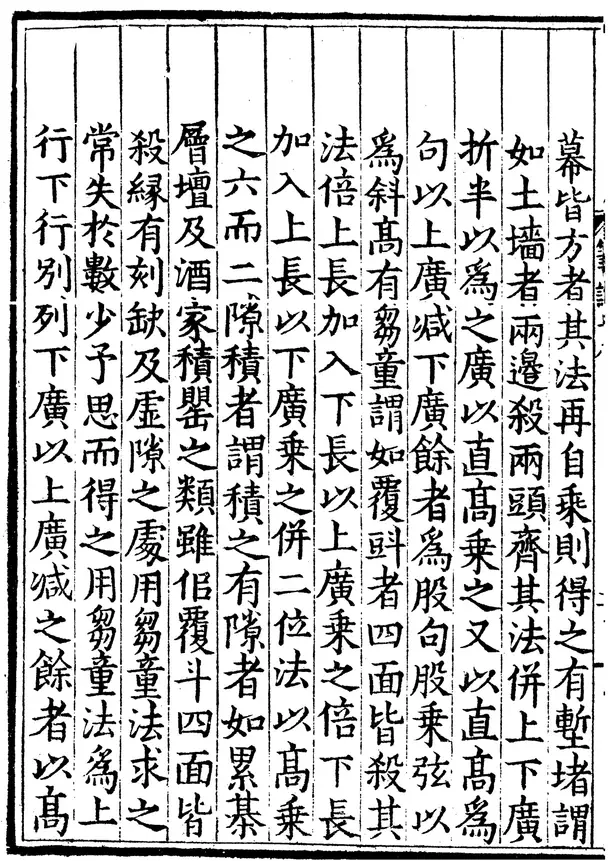 冪皆方者其法再自乘則得之有塹堵謂
如土墻者兩邉殺兩頭齊其法併上下廣
折半以爲之廣以直髙乘之又以直髙爲
句以上廣减下廣餘者爲股句股乘弦以
爲斜髙有芻童謂如覆㪷者四面皆殺其
法倍上長加入下長以上廣乘之倍下長
加入上長以下廣乘之併二位法以髙乘
之六而二隙積者謂積之有隙者如累棊
層壇及酒家積罌之類雖佀覆斗四面皆
殺縁有刻缺及虛隙之處用芻童法求之
常失於數少予思而得之用芻童法爲上
行下行别列下廣以上廣减之餘者以髙